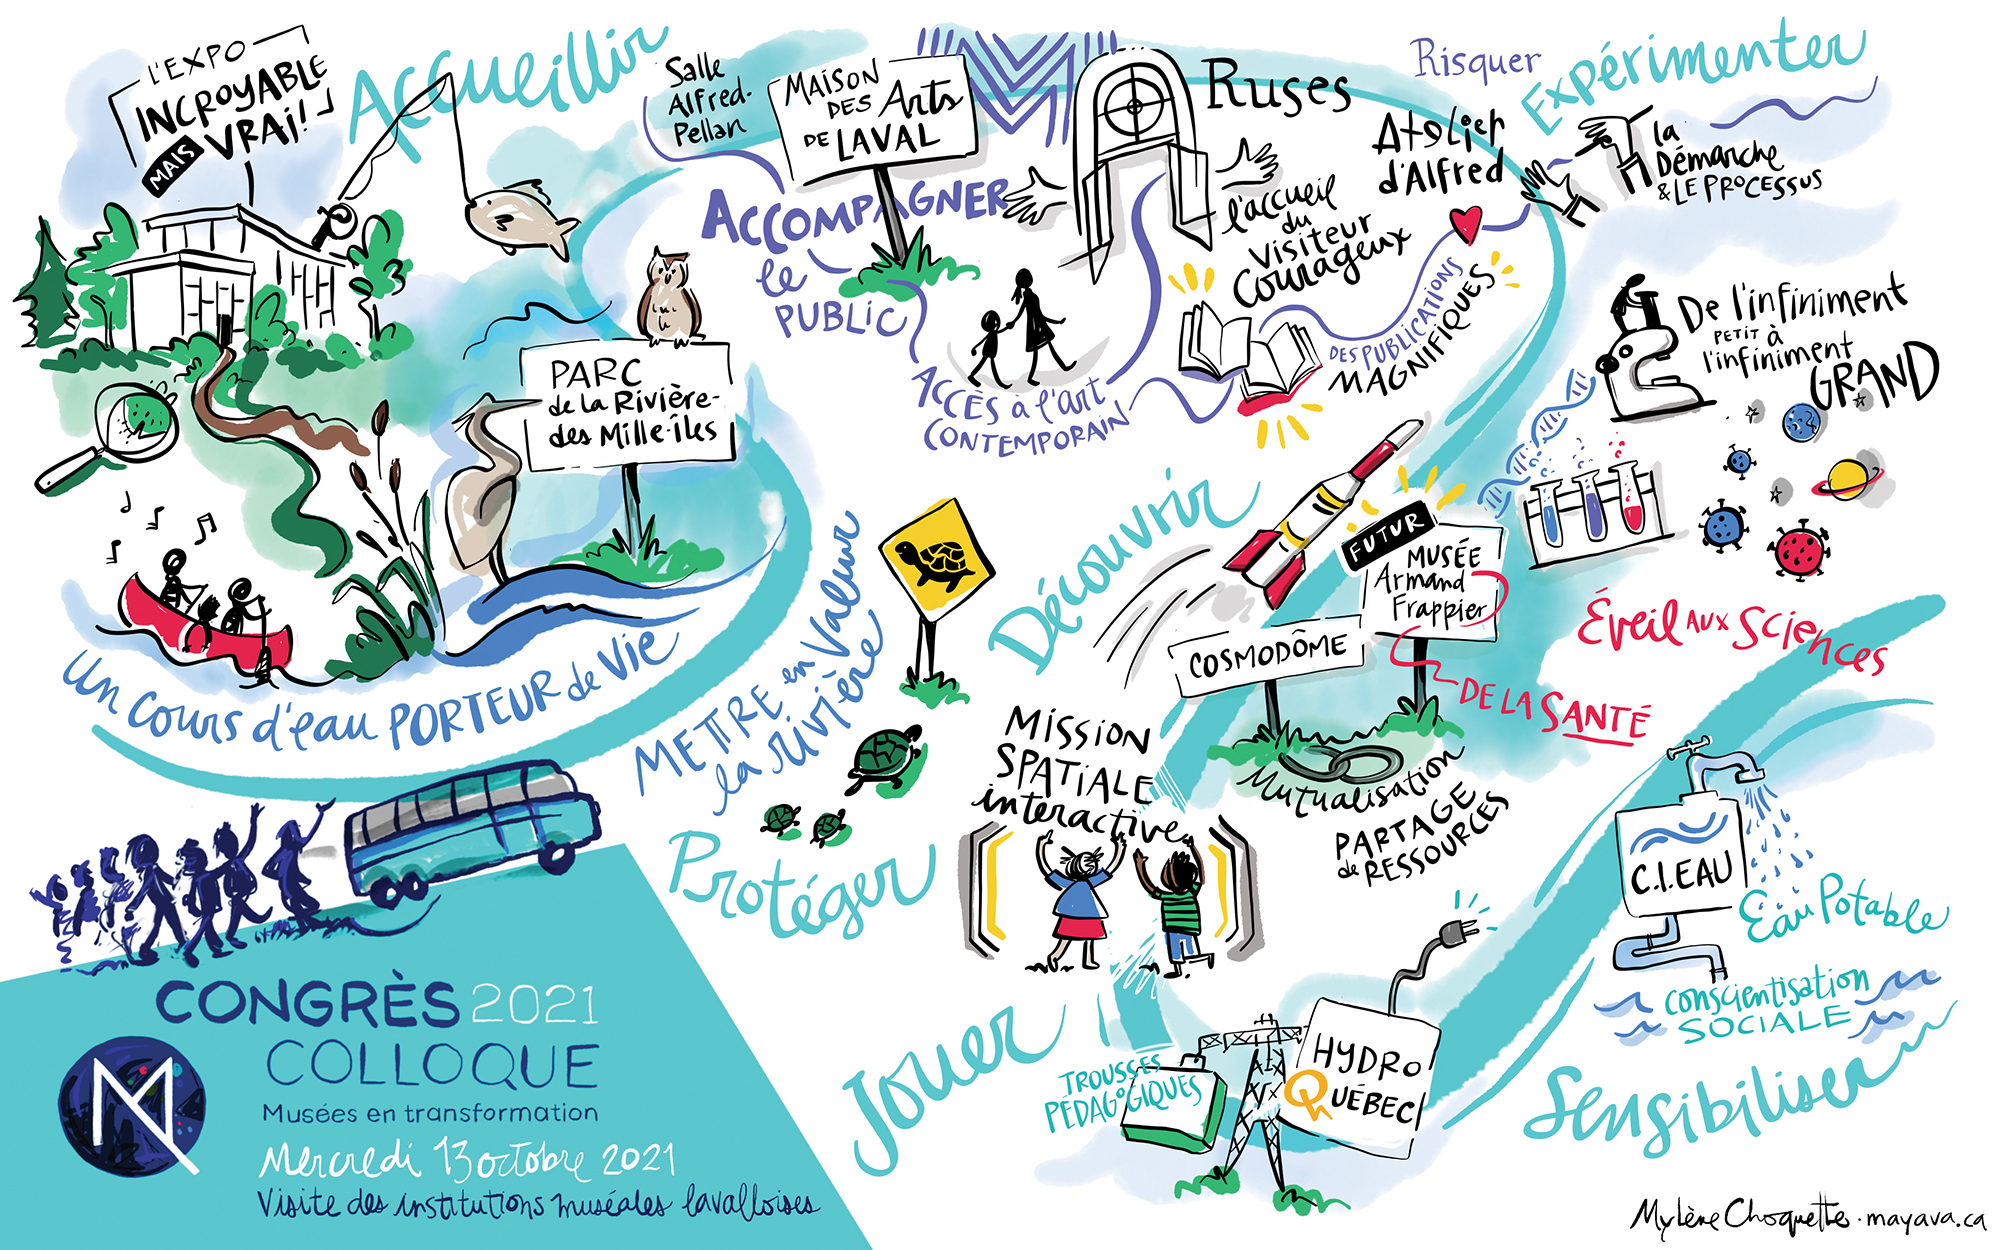 L'EXPO
INCROYABLE
MAIS VRAI!
Accueillir
PARC
de la Rivière-
des Mille-Îles
Un cours d'eau PORTEUR de Vie
METTRE en Valeur
la rivière
Protéger
Salle
Alfred-
Pellan
MAISON
DES Arts
DE LAVAL
ACCOMPAGNER
le
PUBLIC
ACCÈS à l'art
CONTEMPORAIN
Ruses
l'accueil
du
Visiteur
Courageux
Atelier
d'Alfred
DES PUBLICATIONS
MAGNIFIQUES
Risquer
Expérimenter
la
Démarche
& LE PROCESSUS
De l'infiniment
PETIT à
l'infiniment
GRAND
Découvrir
FUTUR
MUSÉE
Armand
Frappier
COSMODÔME
Éveil AUX Sciences
DE LA SANTÉ
Mutualisation
PARTAGE
de RESSOURCES
MISSION
SPATIALE
interactive
Jouer
TROUSSES
PÉDAGOGIQUES
HYDRO
QUÉBEC
C.I.EAU
Eau Potable
conscientisation
SOCIALE
Sensibiliser
CONGRÈS 2021
COLLOQUE
Musées en transformation
Mercredi 13 octobre 2021
Visite des institutions muséales lavalloises
Mylène Choquette · mayava.ca